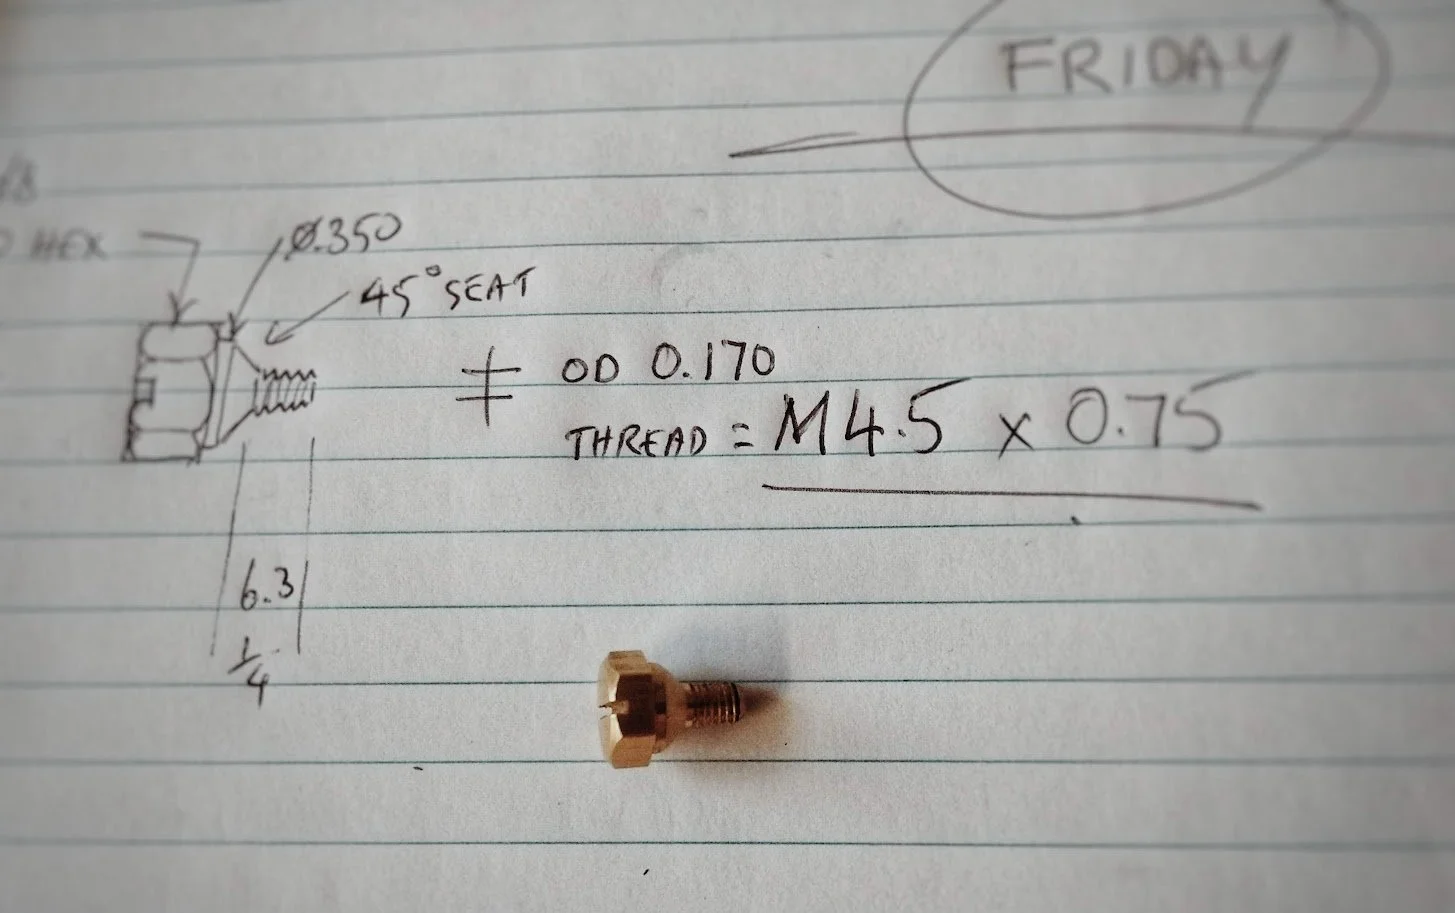 FRIDAY
/8
HEX
Ø.350
45° SEAT
OD 0.170
THREAD = M4.5 x 0.75
6.3
1/4